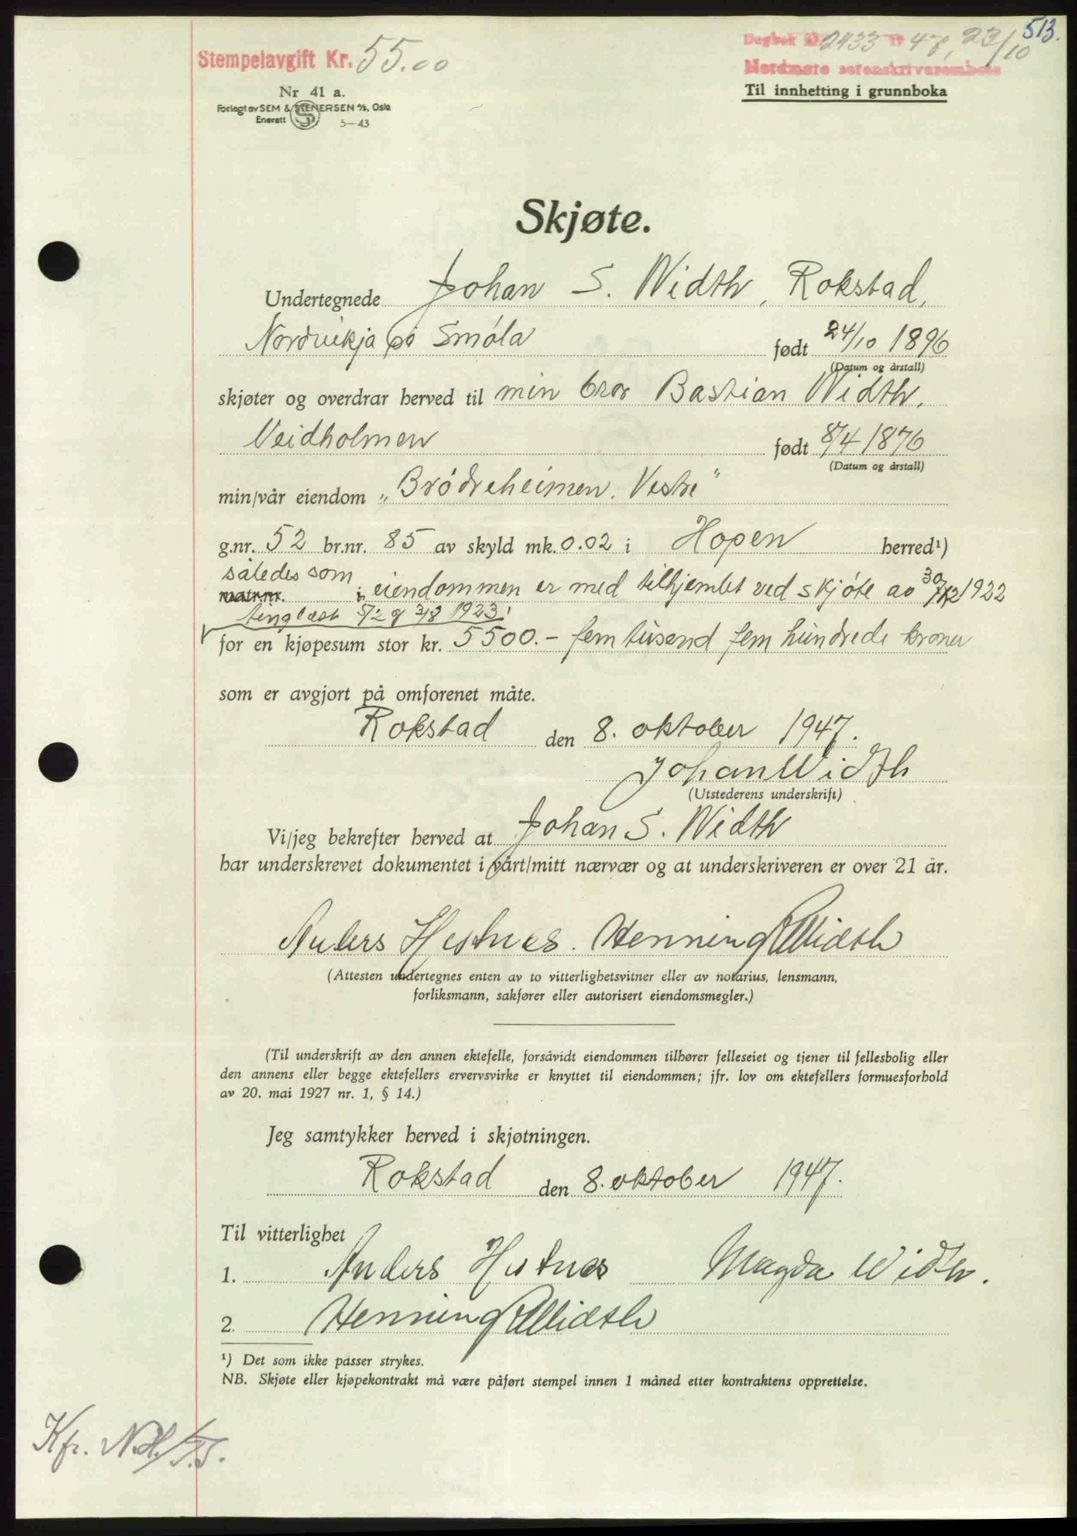 513.
Stempelavgift Kr. 55.00
Dagbok nr. 2433 1947, 23/10
Nordmøre sorenskriverembete
Nr 41 a.
Til innhefting i grunnboka
Forlagt av SEM & STENERSEN A/S, Oslo
Enerett 5-43
Skjøte.
Undertegnede Johan S. Width, Rokstad,
Nordvikja på Smöla født 24/10 1896
(Datum og årstall)
skjøter og overdrar herved til min bror Bastian Width,
Veidholmen født 8/4 1876
(Datum og årstall)
min/vår eiendom "Brödreheimen. Vestre"
g.nr. 52 br.nr. 85 av skyld mk. 0.02 i Hopen herred¹)
således som
matr.nr. i eiendommen er med tilhjemlet ved skjöte av 30/12 1922
tinglæst 5/2 g 3/8 1923!
for en kjøpesum stor kr. 5500.- fem tusend fem hundrede kroner
som er avgjort på omforenet måte.
Rokstad den 8. oktober 1947.
Johan Width
(Utstederens underskrift)
Vi/jeg bekrefter herved at Johan S. Width
har underskrevet dokumentet i vårt/mitt nærvær og at underskriveren er over 21 år.
Anders Hestnes. Henning Width
(Attesten undertegnes enten av to vitterlighetsvitner eller av notarius, lensmann,
forliksmann, sakfører eller autorisert eiendomsmegler.)
(Til underskrift av den annen ektefelle, forsåvidt eiendommen tilhører felleseiet og tjener til fellesbolig eller
den annens eller begge ektefellers ervervsvirke er knyttet til eiendommen; jfr. lov om ektefellers formuesforhold
av 20. mai 1927 nr. 1, § 14.)
Jeg samtykker herved i skjøtningen.
Rokstad den 8. oktober 1947.
Til vitterlighet
1. Anders Hestnes Magda Width.
2. Henning Width
¹) Det som ikke passer strykes.
NB. Skjøte eller kjøpekontrakt må være påført stempel innen 1 måned etter kontraktens opprettelse.
Kfr. N.H./T.S.